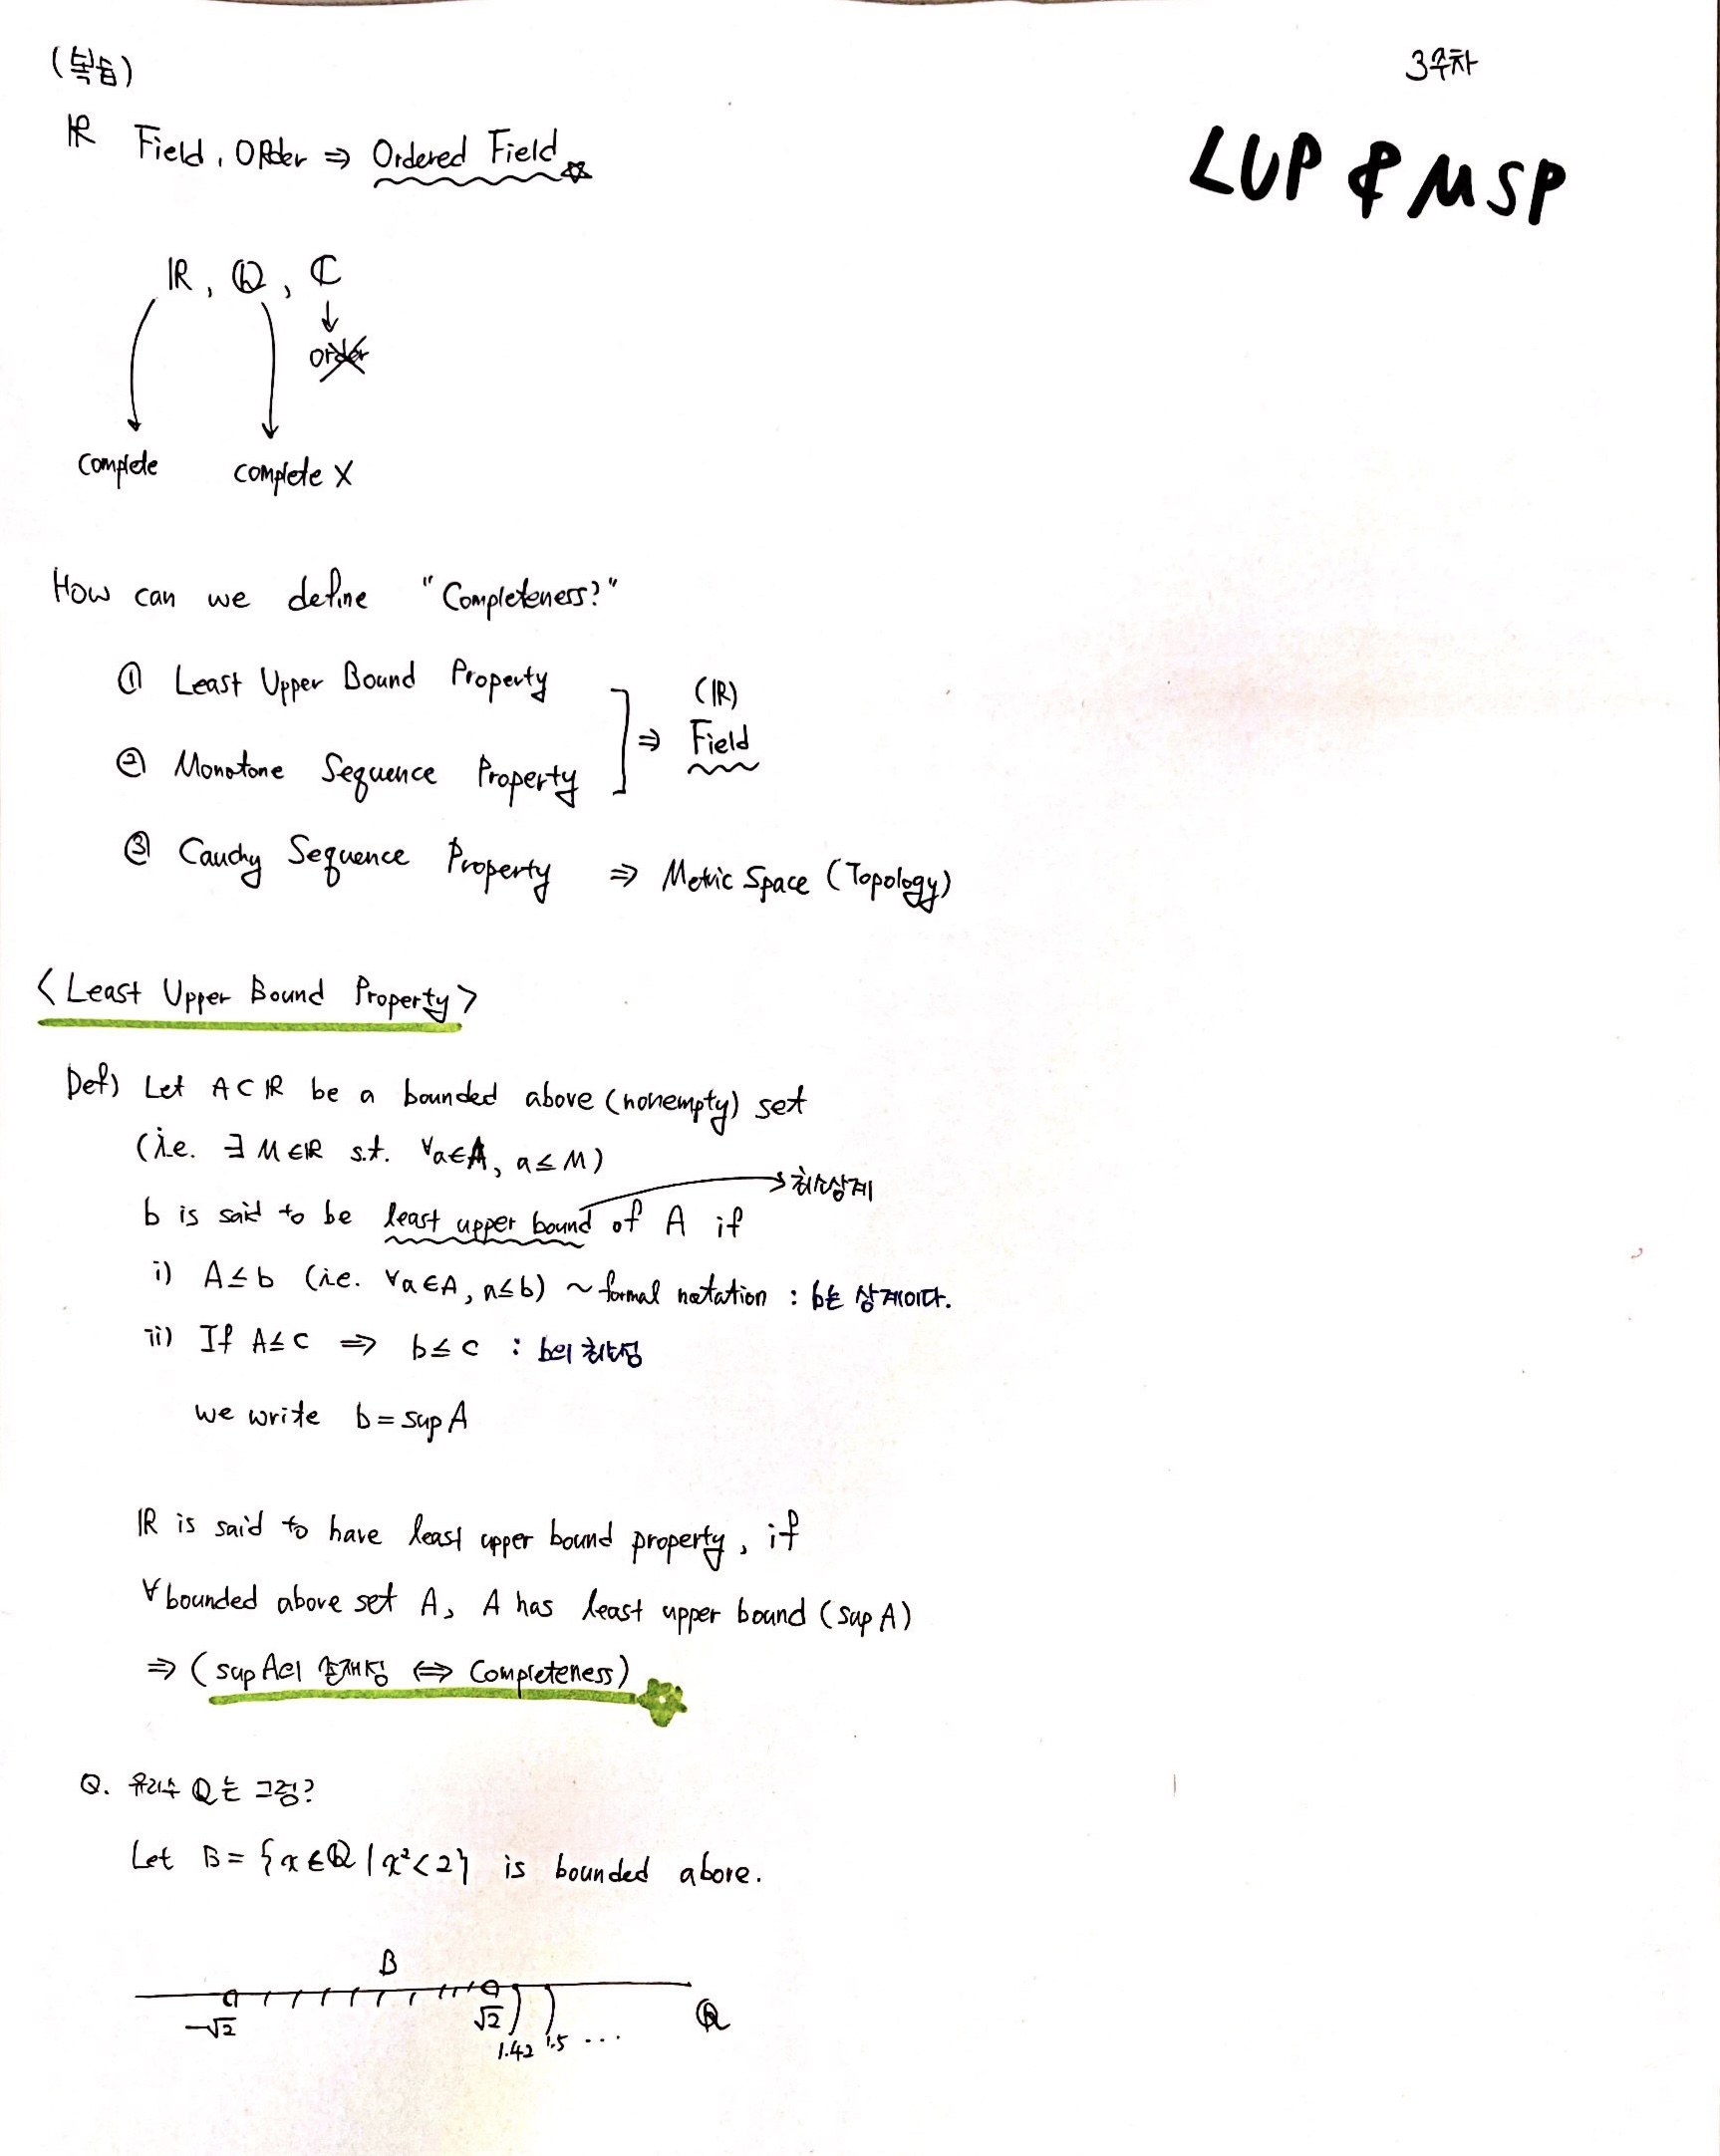 (복습)
3주차
LUP & MSP
ℝ Field, Order ⇒ Ordered Field ☆
ℝ, ℚ, ℂ
order
complete
complete X
How can we define "Completeness?"
① Least Upper Bound Property
② Monotone Sequence Property
⇒ (ℝ) Field
③ Cauchy Sequence Property ⇒ Metric Space (Topology)
<Least Upper Bound Property>
Def) Let A⊂ℝ be a bounded above (nonempty) set
(i.e. ∃M∈ℝ s.t. ∀a∈A, a≤M)
→ 최소상계
b is said to be least upper bound of A if
i) A≤b (i.e. ∀a∈A, a≤b) ~ formal notation : b는 상계이다.
ii) If A≤c ⇒ b≤c : b의 최소성
we write b = sup A
ℝ is said to have least upper bound property, if
∀bounded above set A, A has least upper bound (sup A)
⇒ (sup A의 존재성 ⇔ Completeness)
Q. 유리수 ℚ는 그럼?
Let B = {x∈ℚ | x²<2} is bounded above.
B
-√2 √2 1.42 1.5 ... ℚ